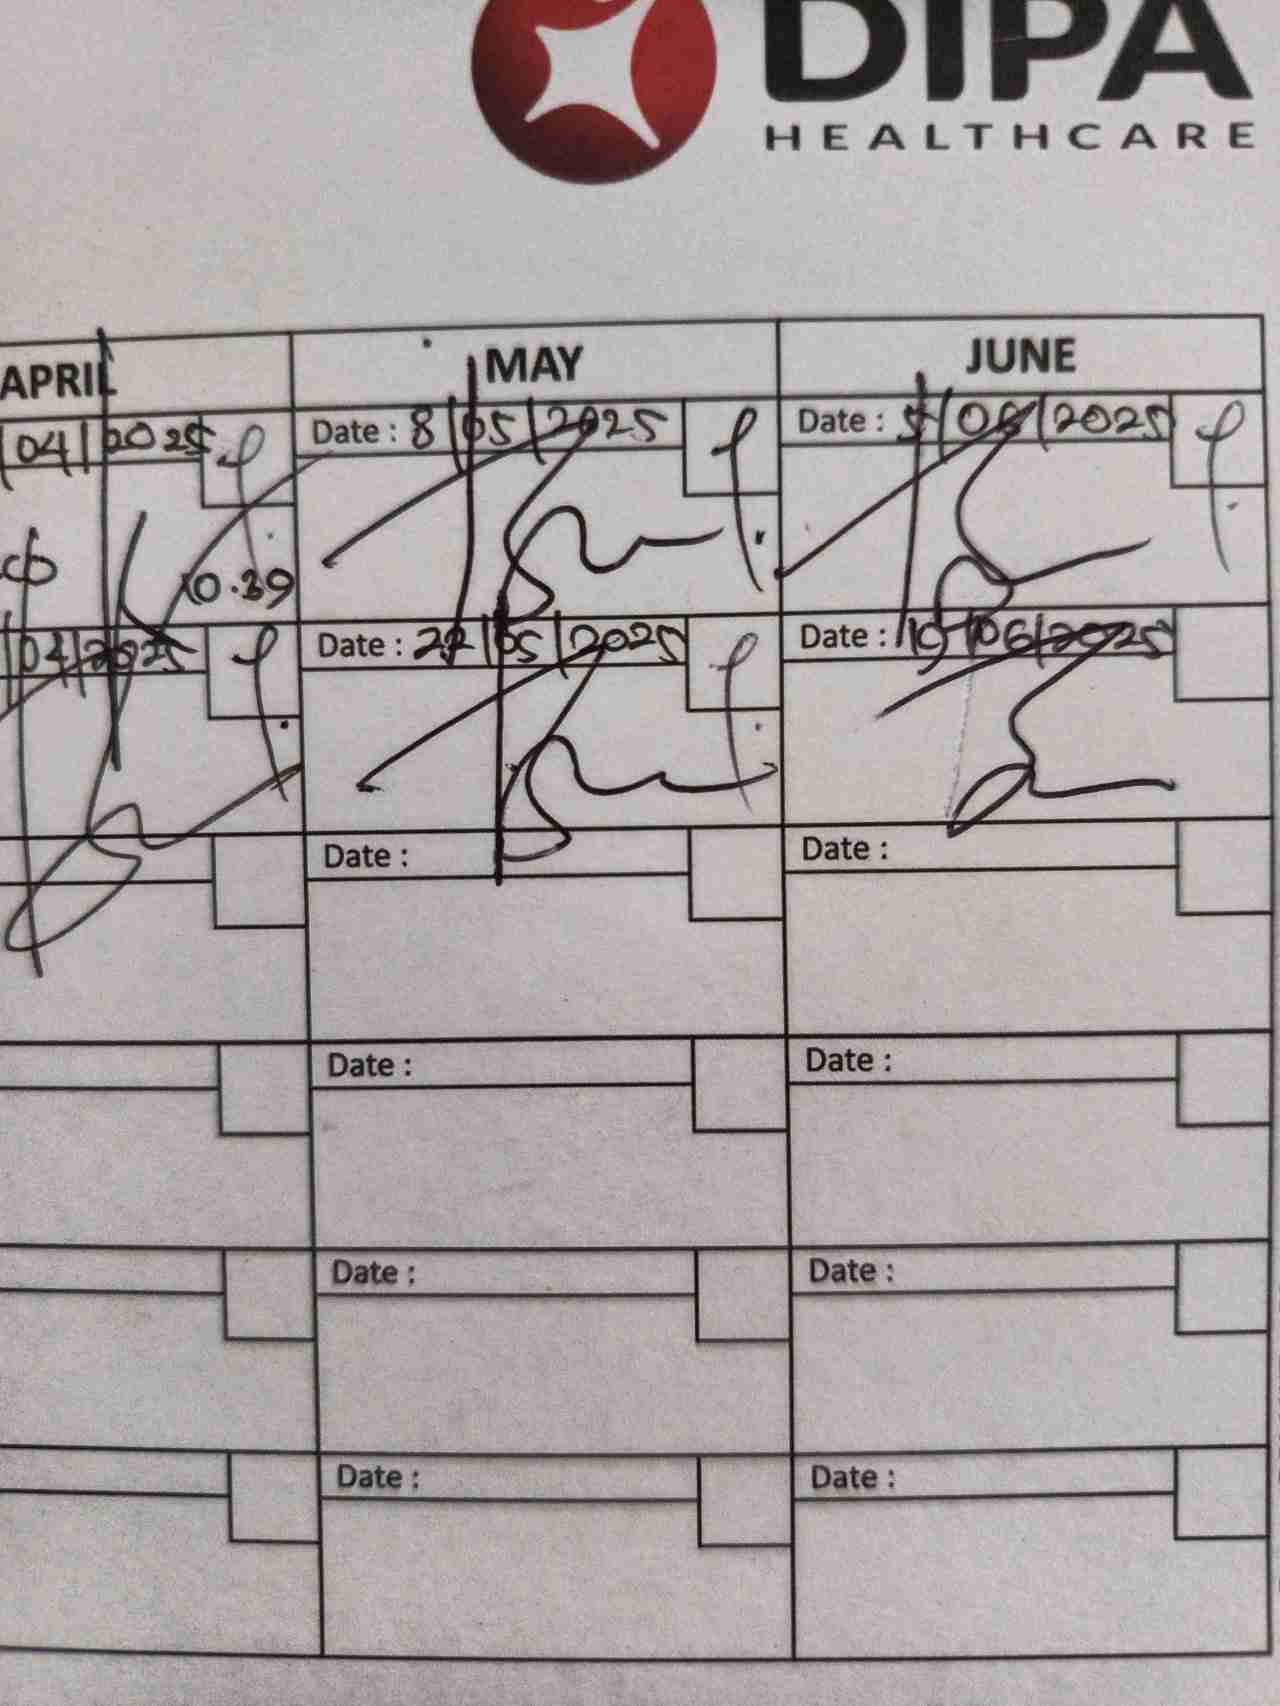 DIPA
HEALTHCARE
APRIL MAY JUNE
04/2025 Date : 8/05/2025 Date : 5/06/2025
10.39
04/2025 Date : 27/05/2025 Date : 19/06/2025
Date : Date :
Date : Date :
Date : Date :
Date : Date :